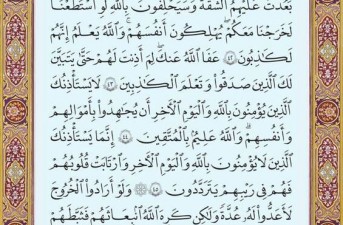 بَعُدَتْ عَلَيْهِمُ الشُّقَّةُ وَسَيَحْلِفُونَ بِاللَّهِ لَوِ اسْتَطَعْنَا
لَخَرَجْنَا مَعَكُمْ يُهْلِكُونَ أَنفُسَهُمْ وَاللَّهُ يَعْلَمُ إِنَّهُمْ
لَكَاذِبُونَ ﴿٤٢﴾ عَفَا اللَّهُ عَنكَ لِمَ أَذِنتَ لَهُمْ حَتَّىٰ يَتَبَيَّنَ
لَكَ الَّذِينَ صَدَقُوا وَتَعْلَمَ الْكَاذِبِينَ ﴿٤٣﴾ لَا يَسْتَأْذِنُكَ
الَّذِينَ يُؤْمِنُونَ بِاللَّهِ وَالْيَوْمِ الْآخِرِ أَن يُجَاهِدُوا بِأَمْوَالِهِمْ
وَأَنفُسِهِمْ وَاللَّهُ عَلِيمٌ بِالْمُتَّقِينَ ﴿٤٤﴾ إِنَّمَا يَسْتَأْذِنُكَ
الَّذِينَ لَا يُؤْمِنُونَ بِاللَّهِ وَالْيَوْمِ الْآخِرِ وَارْتَابَتْ قُلُوبُهُمْ
فَهُمْ فِي رَيْبِهِمْ يَتَرَدَّدُونَ ﴿٤٥﴾ وَلَوْ أَرَادُوا الْخُرُوجَ
لَأَعَدُّوا لَهُ عُدَّةً وَلَٰكِن كَرِهَ اللَّهُ انبِعَاثَهُمْ فَثَبَّطَهُمْ